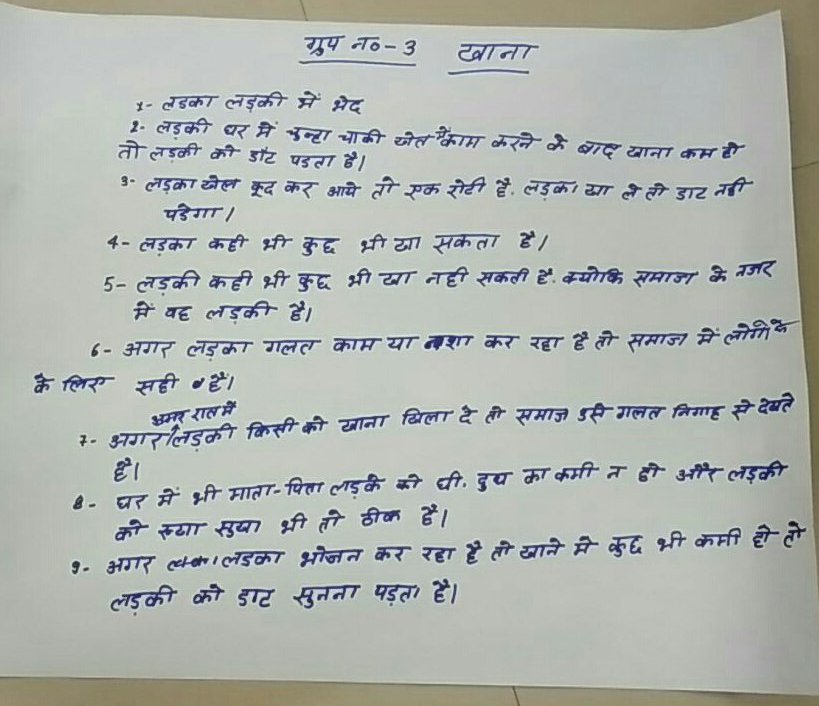 ग्रुप न०-3 खाना
1- लडका लड़की में भेद
2- लड़की घर में चुल्हा चाकी खेत में काम करने के बाद खाना कम हो
तो लड़की को डाँट पडता है।
3- लड़का खेल कूद कर आये तो एक रोटी है. लड़का खा ले तो डाट नही
पडेगा।
4- लड़का कही भी कुछ भी खा सकता है।
5- लड़की कही भी कुछ भी खा नही सकती है. क्योकि समाज के नजर
में वह लड़की है।
6- अगर लड़का गलत काम या नशा कर रहा है तो समाज में लोगो के
के लिए सही है।
रात में
7- अगर लड़की किसी को खाना खिला दे तो समाज उसे गलत निगाह से देखते
है।
8- घर में भी माता-पिता लड़के को घी. दुध का कमी न हो और लड़की
को रुखा सुखा भी तो ठीक है।
9- अगर लडका भोजन कर रहा है तो खाने मे कुछ भी कमी हो तो
लड़की को डाट सुनना पड़ता है।